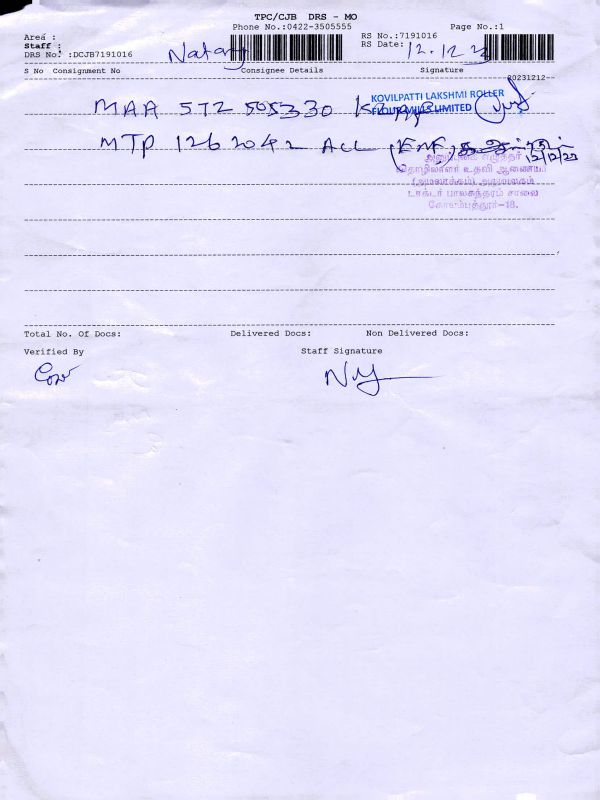 TPC/CJB DRS - MO
Phone No.:0422-3505555 Page No.:1
Area :
RS No.:7191016
Staff : Nataraj
RS Date: 12.12.23
DRS No. :DCJB7191016
S No Consignment No Consignee Details Signature
20231212
MAA 572 505330
KOVILPATTI LAKSHMI ROLLER
FLOUR MILLS LIMITED
MTP 126 2042 ACL (ENF)
12/12/23
அனுப்புகை எழுத்தர்
தொழிலாளர் உதவி ஆணையர்
(அமலாக்கம்) அலுவலகம்
டாக்டர் பாலசுந்தரம் சாலை
கோயம்புத்தூர்-18.
Total No. Of Docs: Delivered Docs: Non Delivered Docs:
Verified By Staff Signature